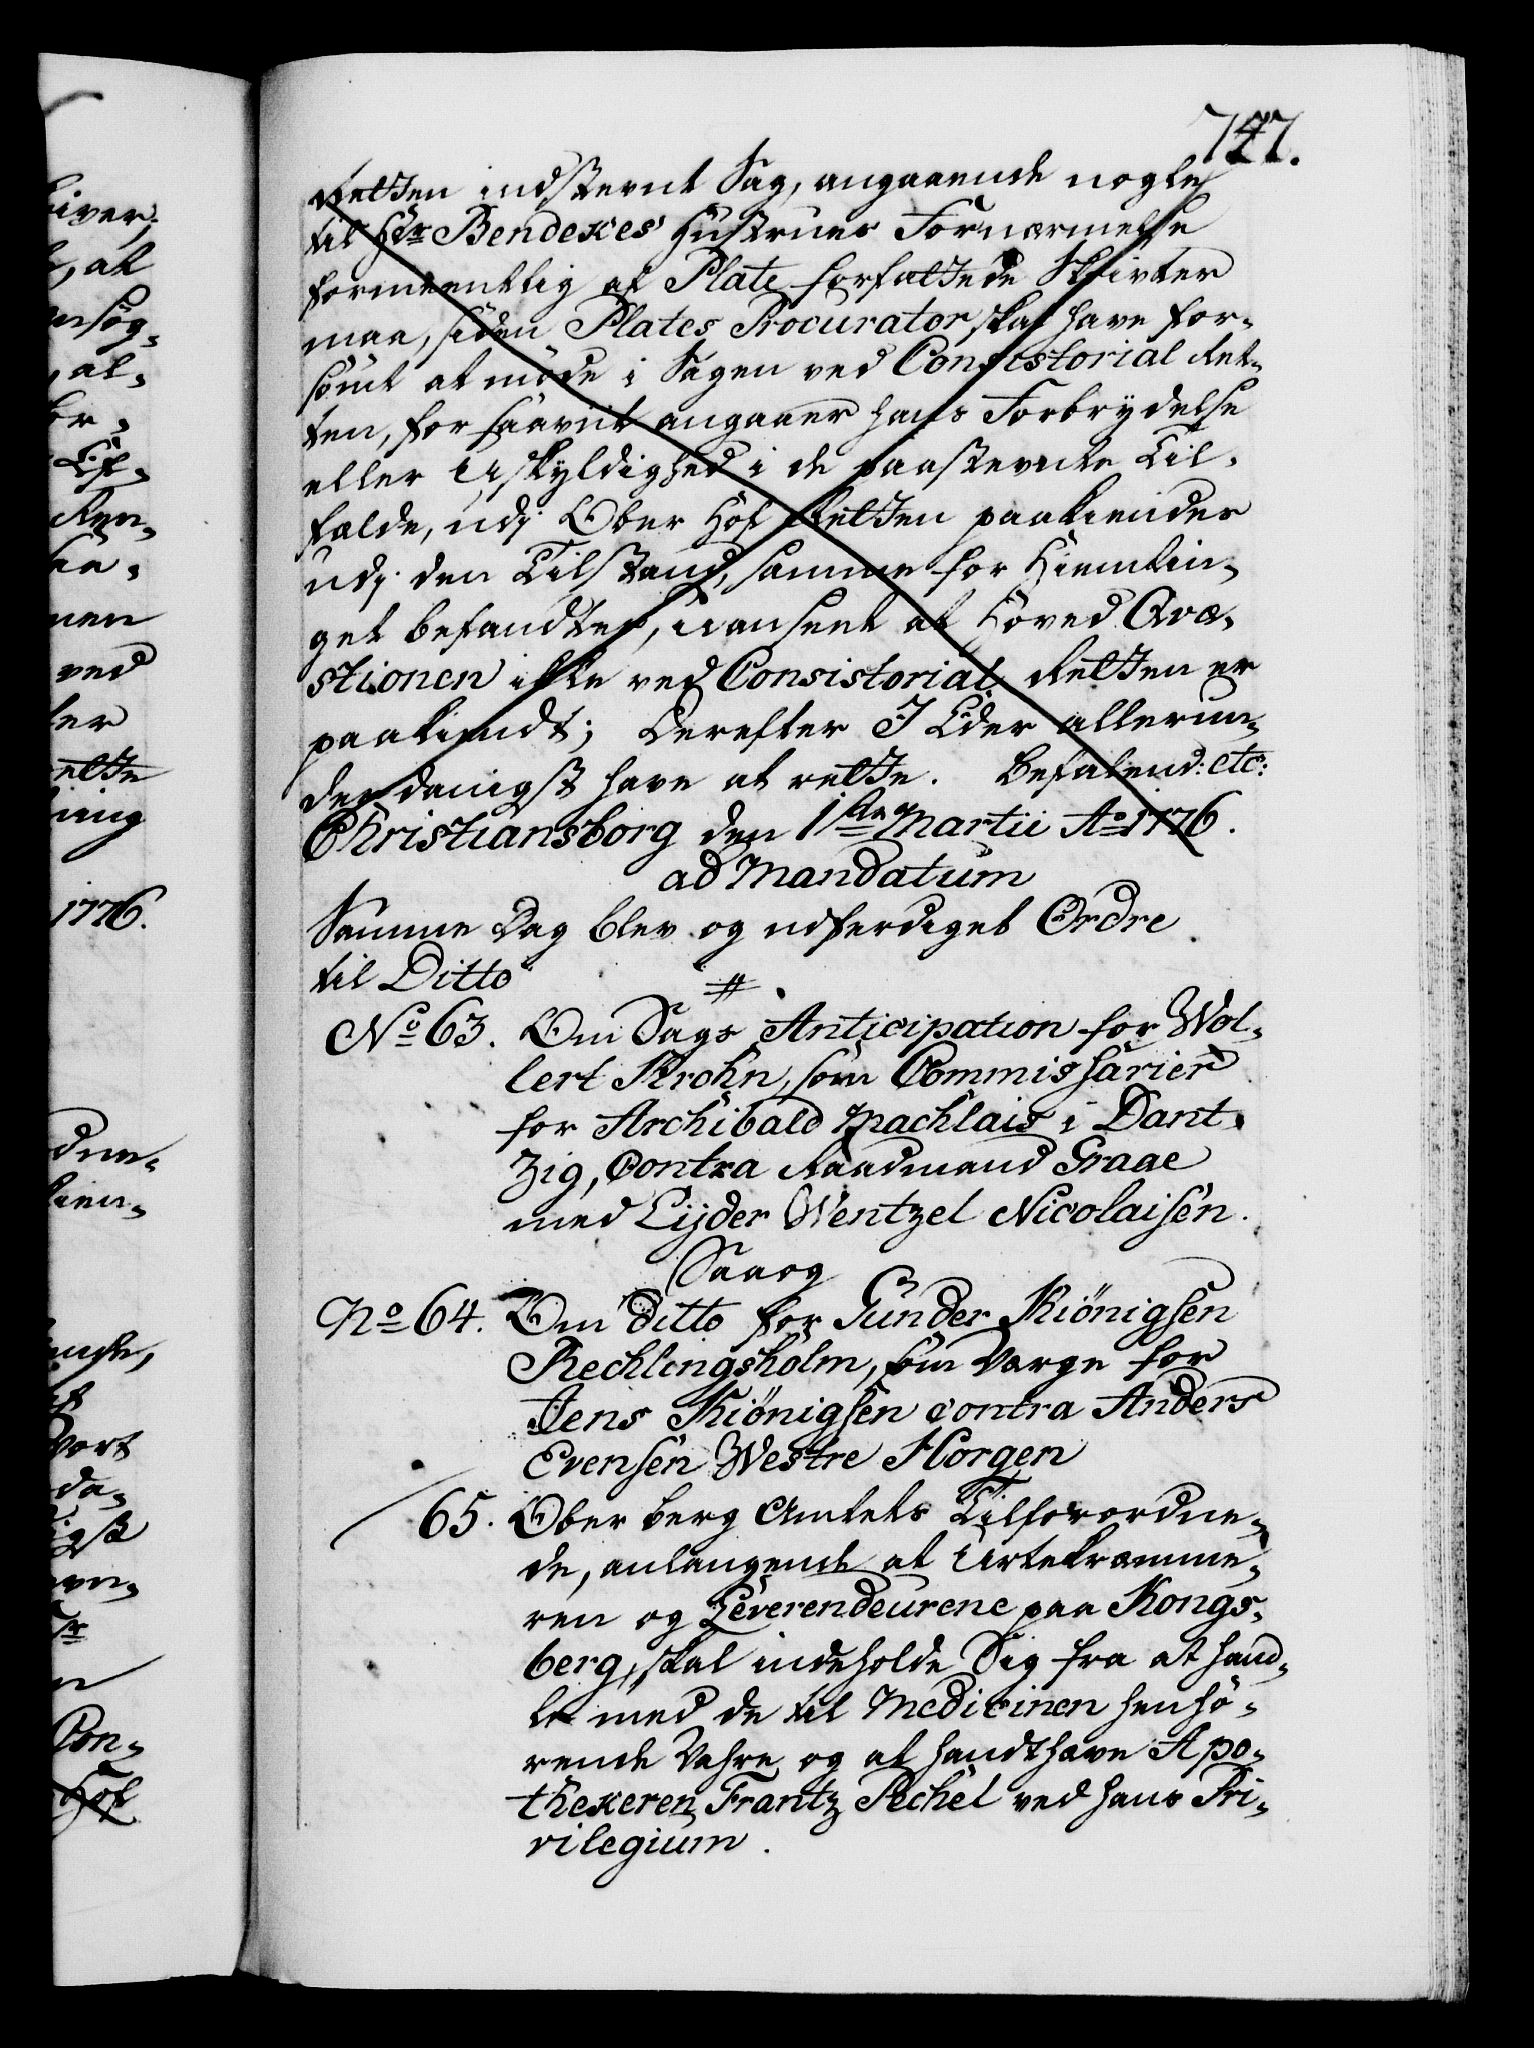 747.
Retten indstevnt Sag, angaaende nogle
til Hr Bendekes Hustrues Fornærmelse
formeentlig af Plate forfattede Skrivter
maa, siden Plates Procurator skal have for-
sömt at möde i Sagen ved Consistorial Ret-
ten, for saavit angaaer hans Forbrydelse
eller Uskyldighed i de paastevnte Til-
fælde, udj Ober Hof Retten paakiendes
udj den Tilstand, samme for Hiemtin-
get befandtes, uanseet at Hoved Qvæ-
stionen ikke ved Consistorial Retten er
paakiendt; Derefter I Eder allerun-
derdanigst have at rette. Befalend: etc:
Christiansborg den 1ste Martii Ao 1776.
ad Mandatum
Samme Dag blev og udferdiget Ordre
til Ditto
No 63. Om Sags Anticipation for Wol-
lert Krohn, som Commissarier
for Archibald Machlais i Dant-
zig, Contra Raadmand Graae
med Lyder Wentzel Nicolaisen.
Saaog
No 64. Om ditto for Gunder Kiönigsen
Rechlingsholm, som Verge for
Jens Kiönigsen contra Anders
Evensen Westre Horgen
65. Ober Berg Amtets Tilforordne-
de, anlangende at Urtekræmme-
ren og Leverendeurene paa Kongs-
berg, skal indeholde Sig fra at hand-
le med de til Medicinen henhö-
rende Vahre og at handthæve Apo-
thekeren Frantz Pechel ved hans Pri-
vilegium.